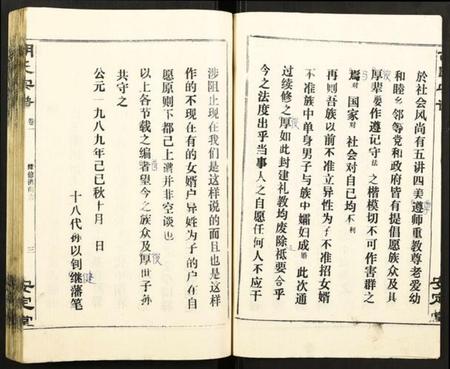 於社会风尚有五讲四美遵师重教尊老爱幼
和睦乡邻等党和政府皆有提倡愿族众及其
厚辈晏作遵记守法之楷模切不可作害群之
焉对国家对社会对自己均不利
再则吾族以前不准立异性为子不准招女婿
不准族中单身男子与族中孀妇成婚此次通
过续修之厚如此封建礼教均废除祗要合乎
今之法度出乎当事人之自愿任何人不应干
涉阻止现在我们是这样说的而且也是这样
作的不现在有的女婿户姓为子的户在自
愿原则下都己上谱并非空谈也
以上各节载之编者望今之族众及厚世子孙
共守之
公元一九八九年己己秋十月 日
十八代孙以钊继藩笔
卷一
三
安定堂
安定堂